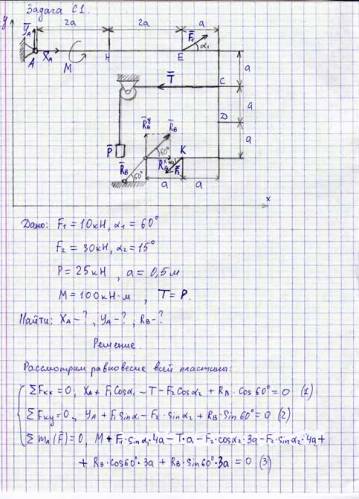 Задача С1.
y
2a 2a a
Y̅A F̅1
A X̅A M H E α1
a
T̅ C
a
D
P̅ R̅B^y R̅B 60° a
R̅B^x K
60° F̅2
a a
x
Дано: F1 = 10кН, α1 = 60°
F2 = 30кН, α2 = 15°
P = 25кН, a = 0,5м
M = 100кН·м, T = P.
Найти: XA - ?, YA - ?, RB - ?
Решение.
Рассмотрим равновесие всей пластины:
ΣFкx = 0, XA + F1cosα1 - T - F2cosα2 + RB·cos60° = 0 (1)
ΣFкy = 0, YA + F1sinα1 - F2·sinα2 + RB·sin60° = 0 (2)
ΣmA(F̅) = 0, M + F1·sinα1·4a - T·a - F2·cosα2·3a - F2·sinα2·4a +
+ RB·cos60°·3a + RB·sin60°·3a = 0 (3)